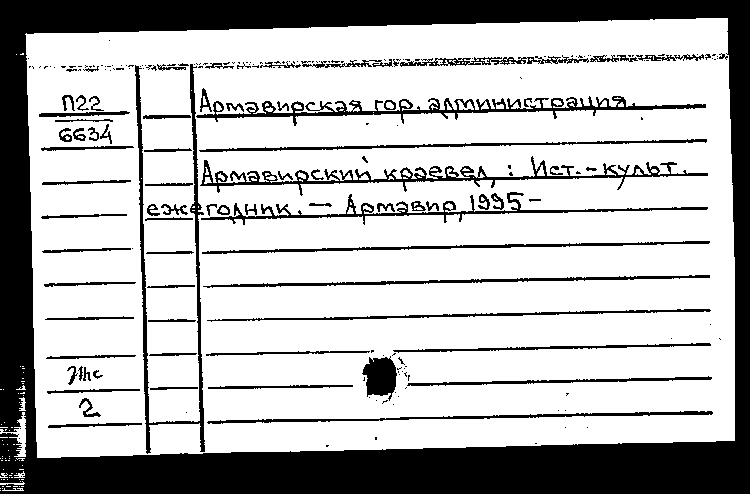 П22
Армавирская гор. администрация.
6634
Армавирский краевед : Ист.-культ.
ежегодник. — Армавир, 1995 -
2